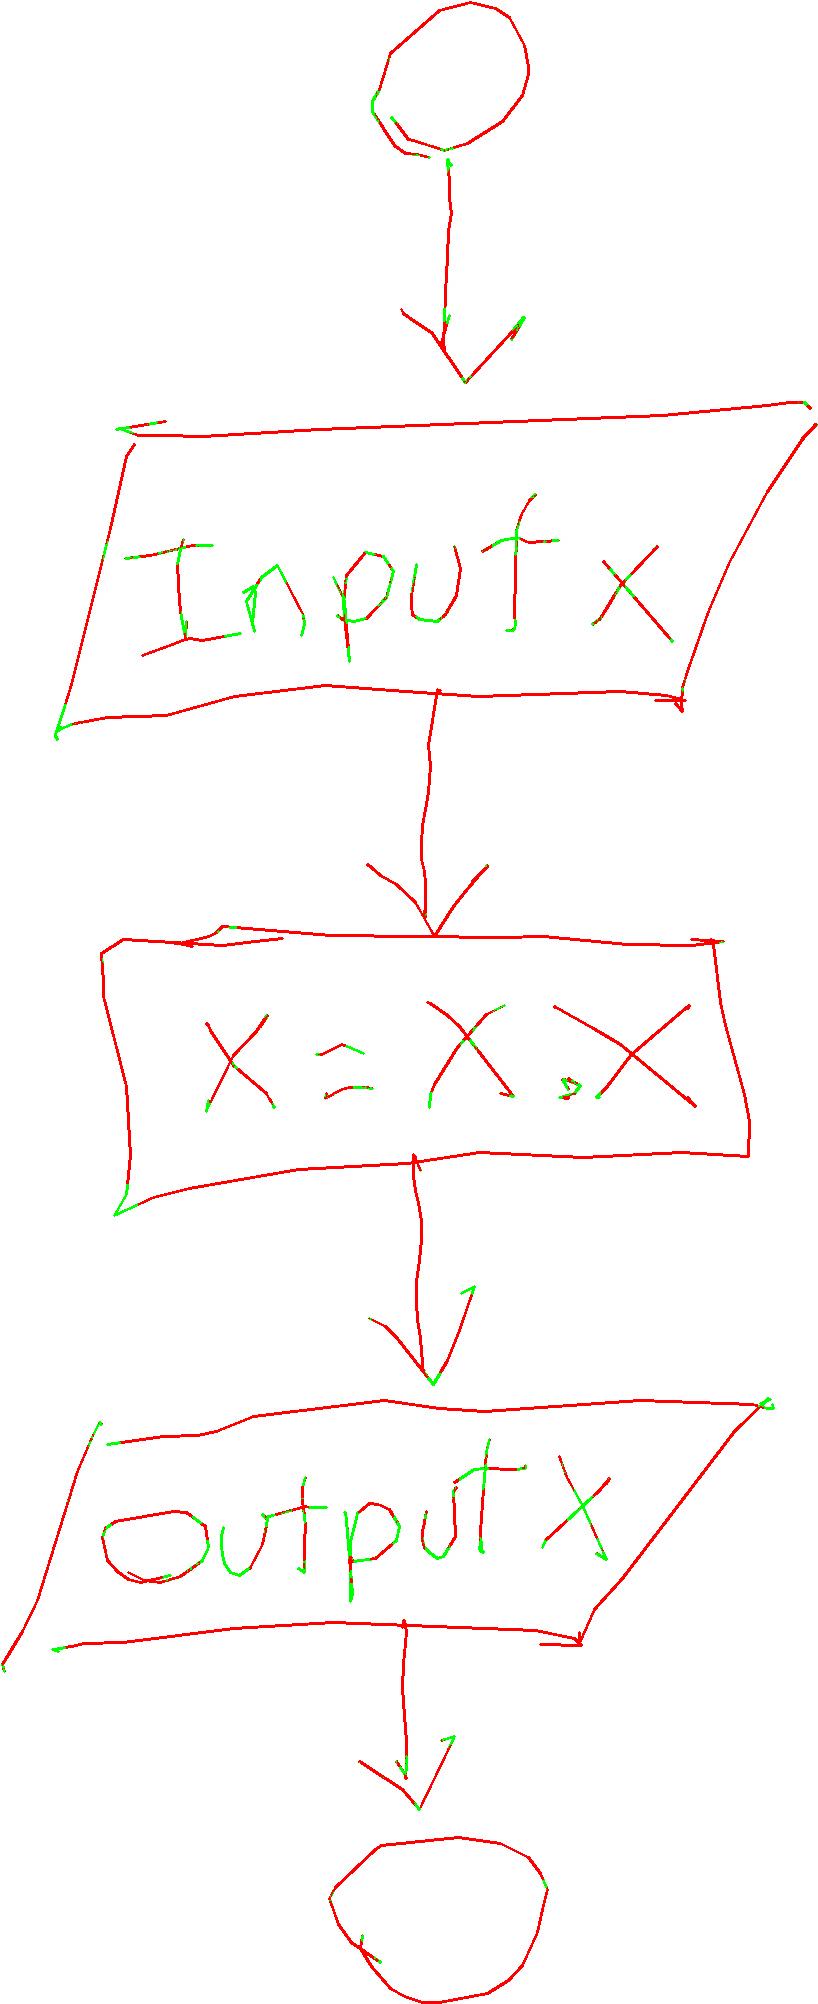 Input x
x = x . x
output x